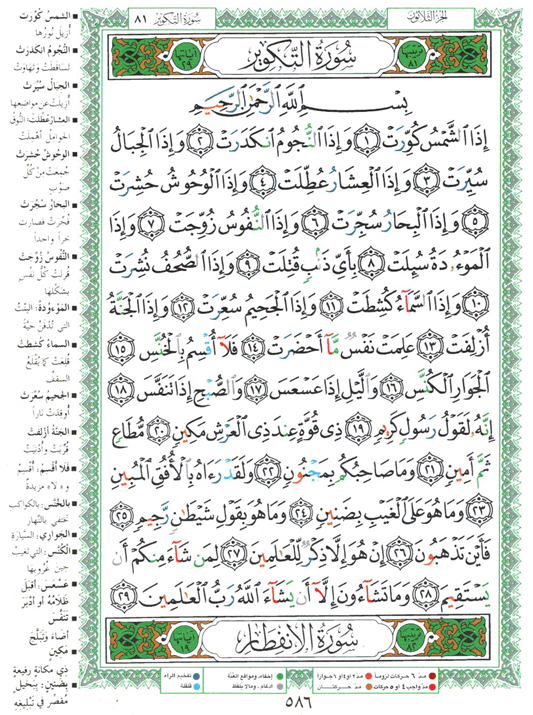 الجزء الثلاثون
سورة التكوير ٨١
ترتيبها ٨١
سُورَةُ التَّكْوِيرِ
آياتها ٢٩
بِسْمِ اللَّهِ الرَّحْمَٰنِ الرَّحِيمِ
إِذَا الشَّمْسُ كُوِّرَتْ ﴿١﴾ وَإِذَا النُّجُومُ انكَدَرَتْ ﴿٢﴾ وَإِذَا الْجِبَالُ
سُيِّرَتْ ﴿٣﴾ وَإِذَا الْعِشَارُ عُطِّلَتْ ﴿٤﴾ وَإِذَا الْوُحُوشُ حُشِرَتْ
﴿٥﴾ وَإِذَا الْبِحَارُ سُجِّرَتْ ﴿٦﴾ وَإِذَا النُّفُوسُ زُوِّجَتْ ﴿٧﴾ وَإِذَا
الْمَوْءُودَةُ سُئِلَتْ ﴿٨﴾ بِأَيِّ ذَنبٍ قُتِلَتْ ﴿٩﴾ وَإِذَا الصُّحُفُ نُشِرَتْ
﴿١٠﴾ وَإِذَا السَّمَاءُ كُشِطَتْ ﴿١١﴾ وَإِذَا الْجَحِيمُ سُعِّرَتْ ﴿١٢﴾ وَإِذَا الْجَنَّةُ
أُزْلِفَتْ ﴿١٣﴾ عَلِمَتْ نَفْسٌ مَّا أَحْضَرَتْ ﴿١٤﴾ فَلَا أُقْسِمُ بِالْخُنَّسِ ﴿١٥﴾
الْجَوَارِ الْكُنَّسِ ﴿١٦﴾ وَاللَّيْلِ إِذَا عَسْعَسَ ﴿١٧﴾ وَالصُّبْحِ إِذَا تَنَفَّسَ ﴿١٨﴾
إِنَّهُ لَقَوْلُ رَسُولٍ كَرِيمٍ ﴿١٩﴾ ذِي قُوَّةٍ عِندَ ذِي الْعَرْشِ مَكِينٍ ﴿٢٠﴾ مُّطَاعٍ
ثَمَّ أَمِينٍ ﴿٢١﴾ وَمَا صَاحِبُكُم بِمَجْنُونٍ ﴿٢٢﴾ وَلَقَدْ رَءَاهُ بِالْأُفُقِ الْمُبِينِ
﴿٢٣﴾ وَمَا هُوَ عَلَى الْغَيْبِ بِضَنِينٍ ﴿٢٤﴾ وَمَا هُوَ بِقَوْلِ شَيْطَانٍ رَّجِيمٍ ﴿٢٥﴾
فَأَيْنَ تَذْهَبُونَ ﴿٢٦﴾ إِنْ هُوَ إِلَّا ذِكْرٌ لِّلْعَالَمِينَ ﴿٢٧﴾ لِمَن شَاءَ مِنكُمْ أَن
يَسْتَقِيمَ ﴿٢٨﴾ وَمَا تَشَاءُونَ إِلَّا أَن يَشَاءَ اللَّهُ رَبُّ الْعَالَمِينَ ﴿٢٩﴾
ترتيبها ٨٢
سُورَةُ الانفِطَارِ
آياتها ١٩
الشمس كوّرت
أزيل نورها
النّجوم انكدرت
تساقطت وتهاوت
الجبال سيّرت
أزيلت عن مواضعها
العشار عطّلت: النّوق
الحوامل أهملت
الوحوش حشرت
جمعت من كلّ
صوب
البحار سجّرت
فجّرت فصارت
بحرا واحدا
النّفوس زوّجت
قرنت كلّ نفس
بشكلها
الموءودة: البنت
التي تدفن حيّة
السماء كشطت
قلعت كما يقلع
السقف
الجحيم سعّرت
أوقدت نارا
الجنّة أزلفت
قرّبت وأدنيت
فلا أقسم: أقسم
و «لا» مزيدة
بالخنّس: بالكواكب
تختفي بالنّهار
الجواري: السّيّارة
الكنّس: التي تغيب
حين غروبها
عسعس: أقبل
ظلامه أو أدبر
تنفّس
أضاء وتبلّج
مكين
ذي مكانة رفيعة
بضنين: ببخيل
مقصّر في تبليغه
مدّ ٦ حركات لزوماً
مدّ ٢ أو ٤ أو ٦ جوازاً
إخفاء، ومواقع الغنّة
تفخيم الراء
مدّ واجب ٤ أو ٥ حركات
مدّ حركتان
ادغام، وما لا يلفظ
قلقلة
٥٨٦